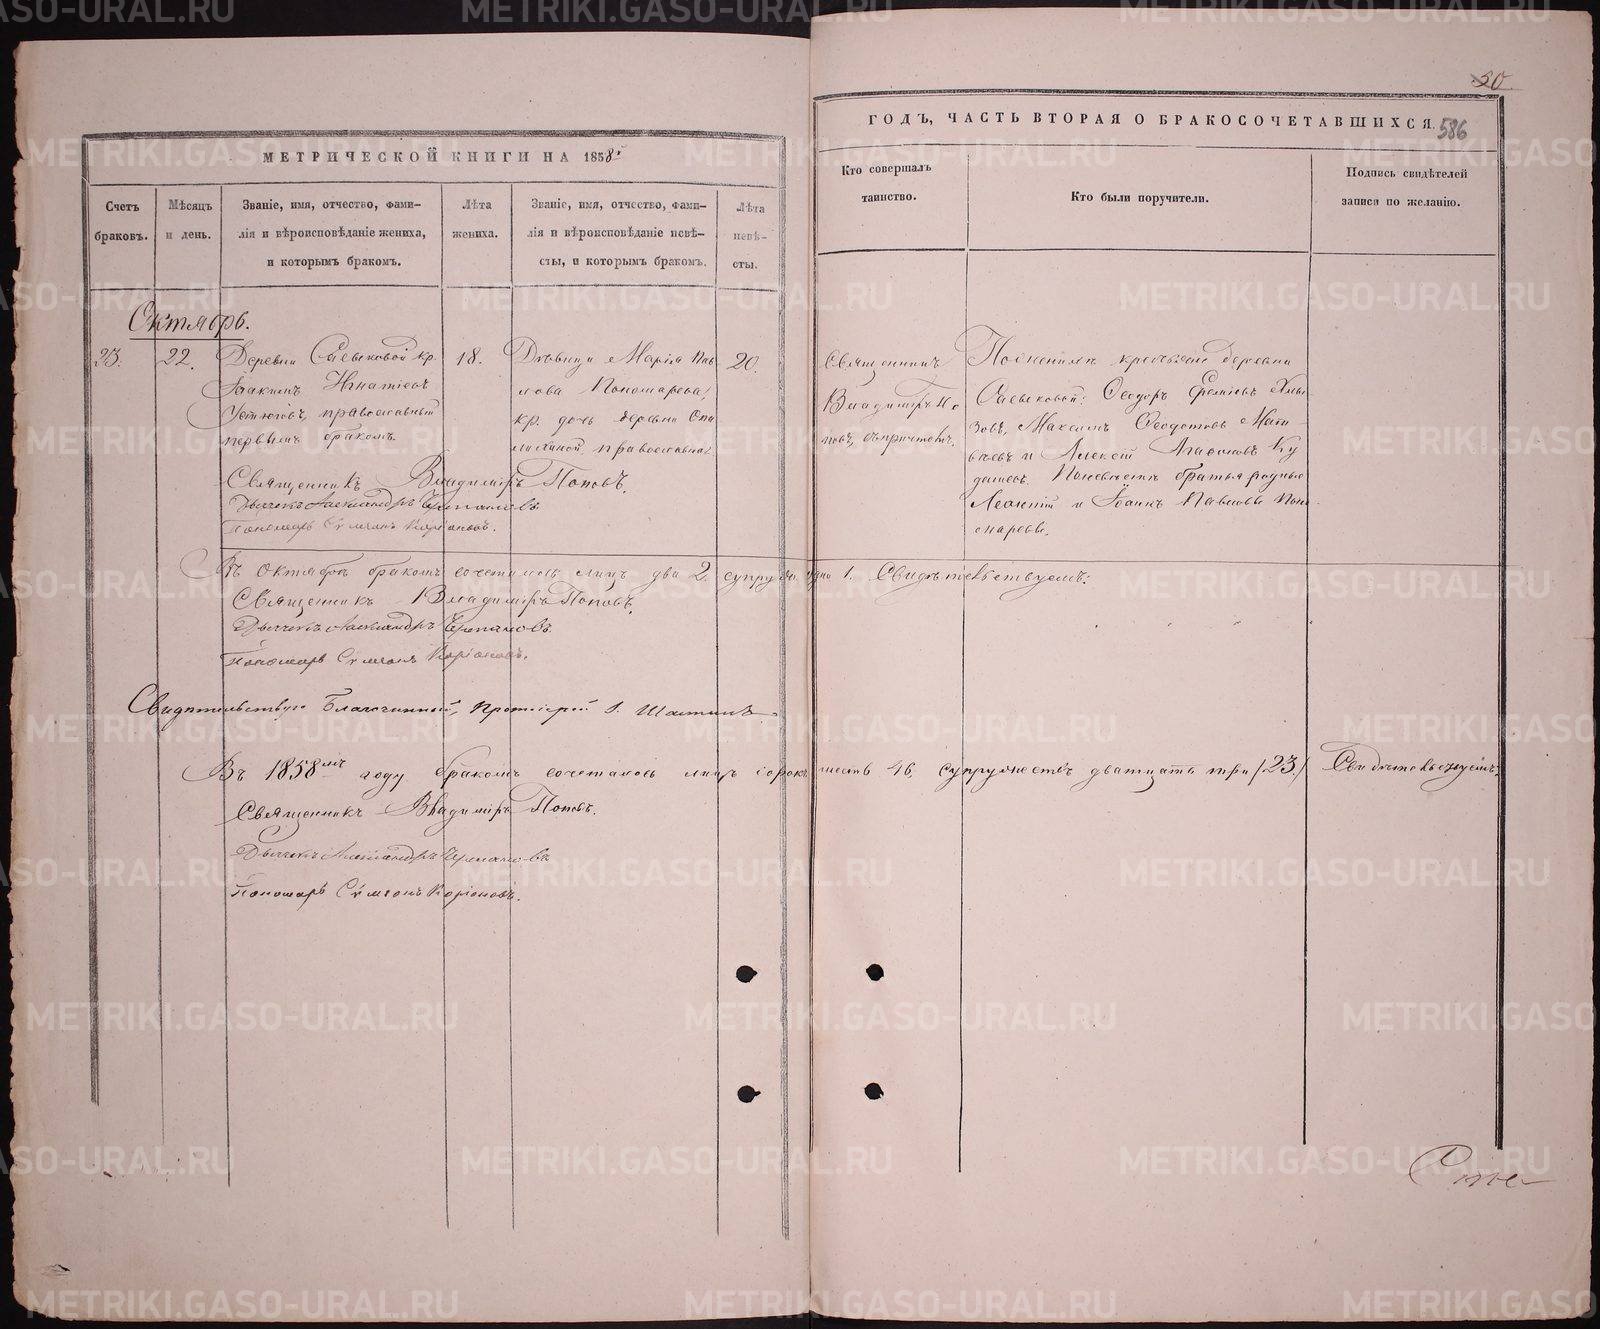 МЕТРИЧЕСКОЙ КНИГИ НА 1858й
ГОДЪ, ЧАСТЬ ВТОРАЯ О БРАКОСОЧЕТАВШИХСЯ.
50
586
Счетъ браковъ.
Мѣсяцъ и день.
Званіе, имя, отчество, фами-
лія и вѣроисповѣданіе жениха,
и которымъ бракомъ.
Лѣта жениха.
Званіе, имя, отчество, фами-
лія и вѣроисповѣданіе невѣ-
сты, и которымъ бракомъ.
Лѣта невѣ-
сты.
Кто совершалъ
таинство.
Кто были поручители.
Подпись свидѣтелей
записи по желанію.
Октябрь.
23.
22.
Деревни кр.
Іоакимъ Игнатіевъ
Устюговъ, православный
первымъ бракомъ.
18.
Дѣвица Марія Пав
лова Пономарева,
кр. дочь деревни
православная
20.
Священникъ
Владиміръ По
повъ, съ причтомъ.
По женихѣ крестьяне деревни
Ѳеодоръ
Максимъ Ѳеодотовъ Мат
вѣевъ и Алексій Ку
По невѣстѣ братья родные
Леонтій и Іоаннъ Павловы Поно
маревы.
Священникъ Владиміръ Поповъ.
Дьячекъ Александръ Черепановъ
Пономарь Сѵмеонъ Каріоновъ.
Въ Октябрѣ бракомъ сочеталось лицъ два 2. супружество одно 1. Свидѣтельствуемъ:
Священникъ Владиміръ Поповъ.
Дьячекъ Александръ Черепановъ.
Пономарь Сѵмеонъ Каріоновъ.
Свидѣтельствую Благочинный, Протоіерей І.
Въ 1858мъ году бракомъ сочеталось лицъ сорокъ шесть 46, супружествъ дватцать три (23.) Свидѣтельствуемъ:
Священникъ Владиміръ Поповъ.
Дьячекъ Александръ Черепановъ
Пономарь Сѵмеонъ Каріоновъ.
METRIKI.GASO-URAL.RU